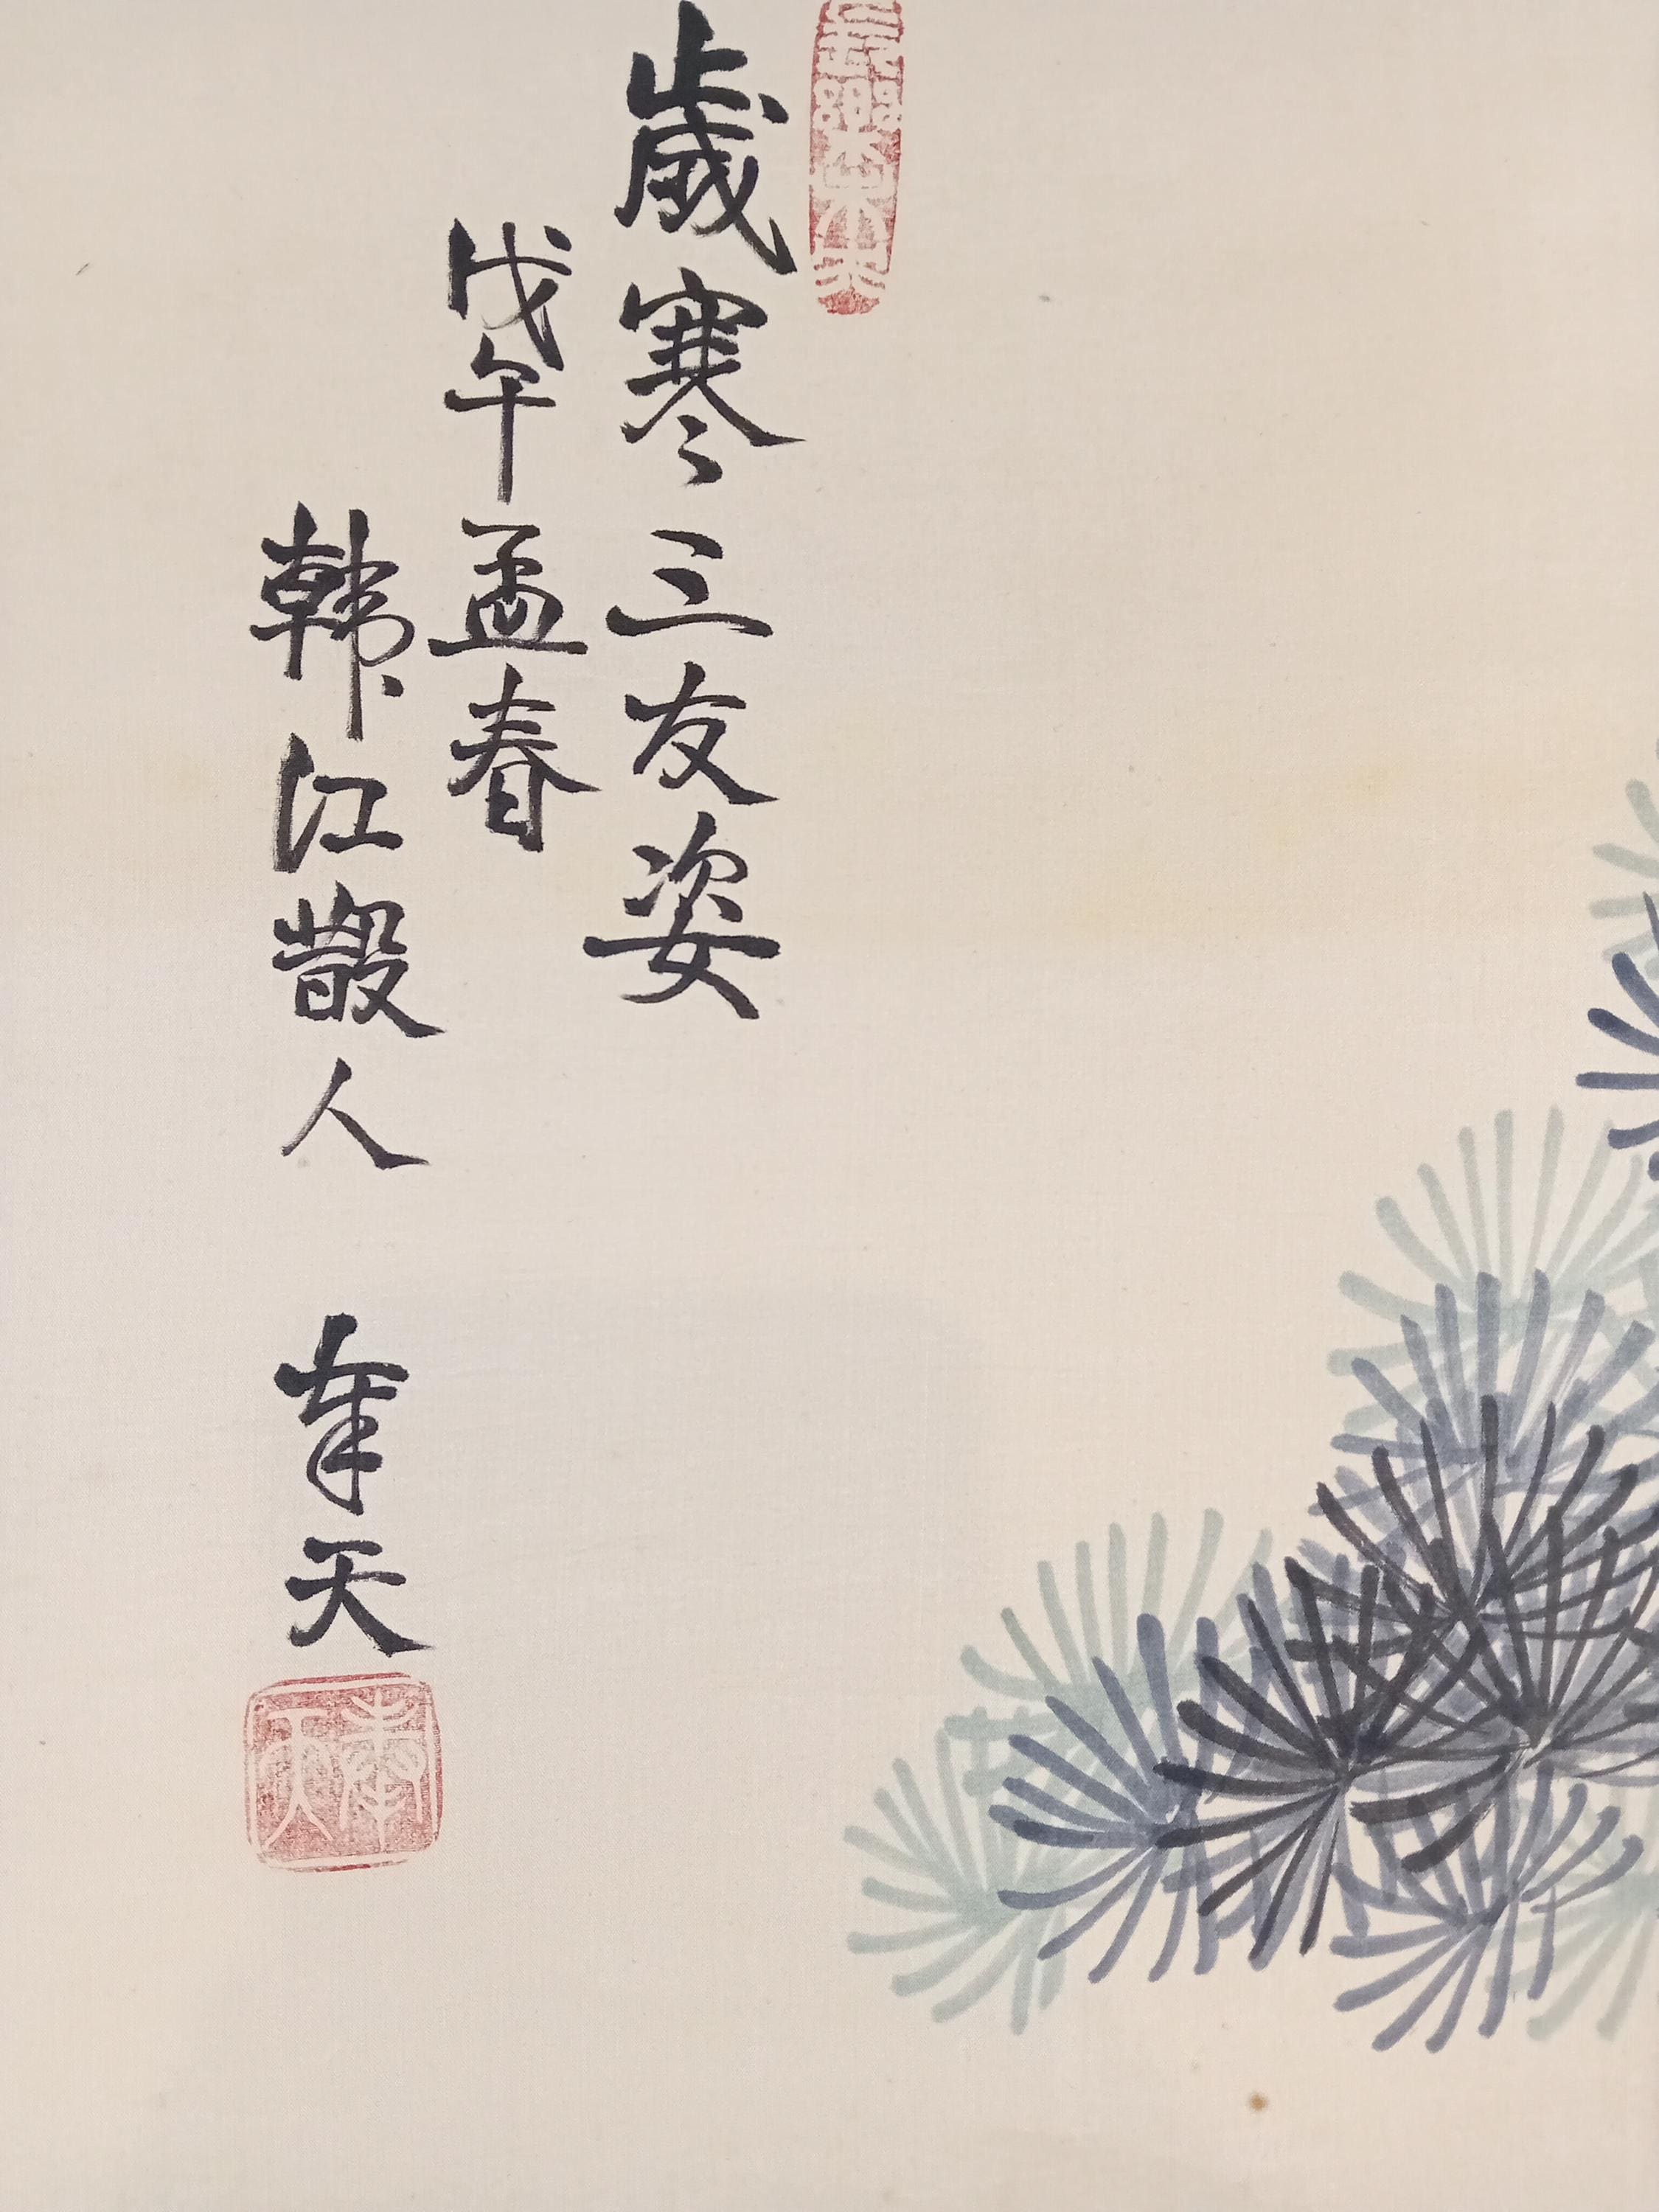 歲寒三友姿
戊午孟春
韓江散人 奉天
奉天